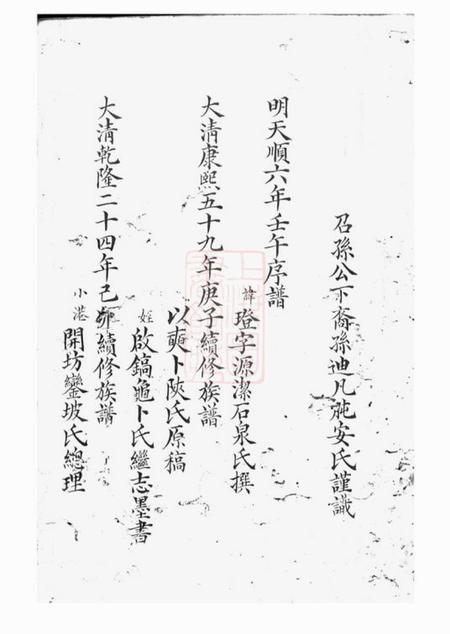 召孫公下裔孫迪凡㐌安氏謹識
明天順六年壬午序譜
諱璒字源潔石泉氏撰
大清康熙五十九年庚子續修族譜
以奭卜陝氏原稿
姪啟鎬龜卜氏繼志墨書
大清乾隆二十四年己卯續修族譜
小港開坊鑾坡氏總理